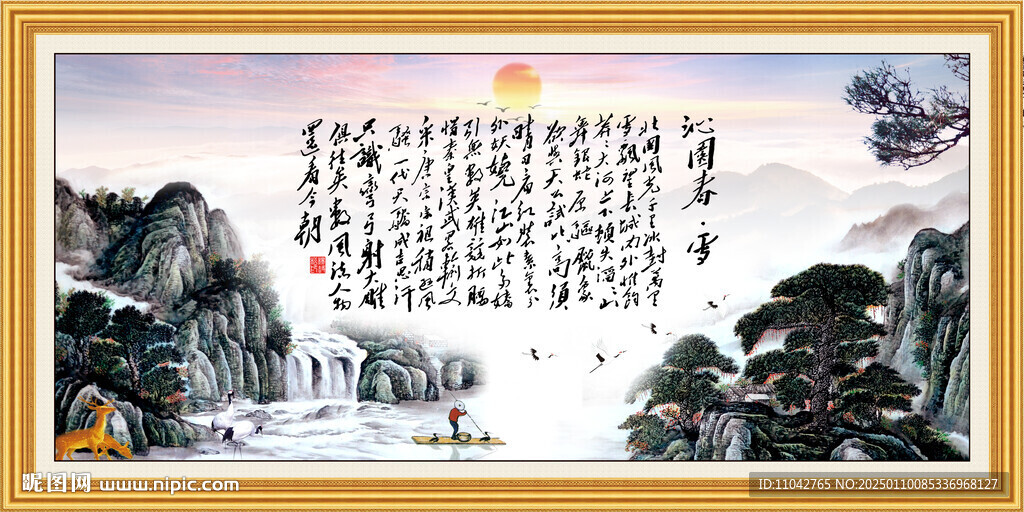 沁園春·雪
北國風光千里冰封萬里
雪飘望长城内外惟余
莽莽大河上下顿失滔滔山
舞銀蛇原驱臘象
欲与天公試比高須
晴日看红裝素裹分
外妖嬈江山如此多嬌
引无數英雄競折腰
惜秦皇漢武略輸文
采唐宗宋祖稍逊風
騷一代天驕成吉思汗
只識彎弓射大雕
俱往矣數風流人物
還看今朝
昵图网 www.nipic.com
ID:11042765 NO:20250110085336968127